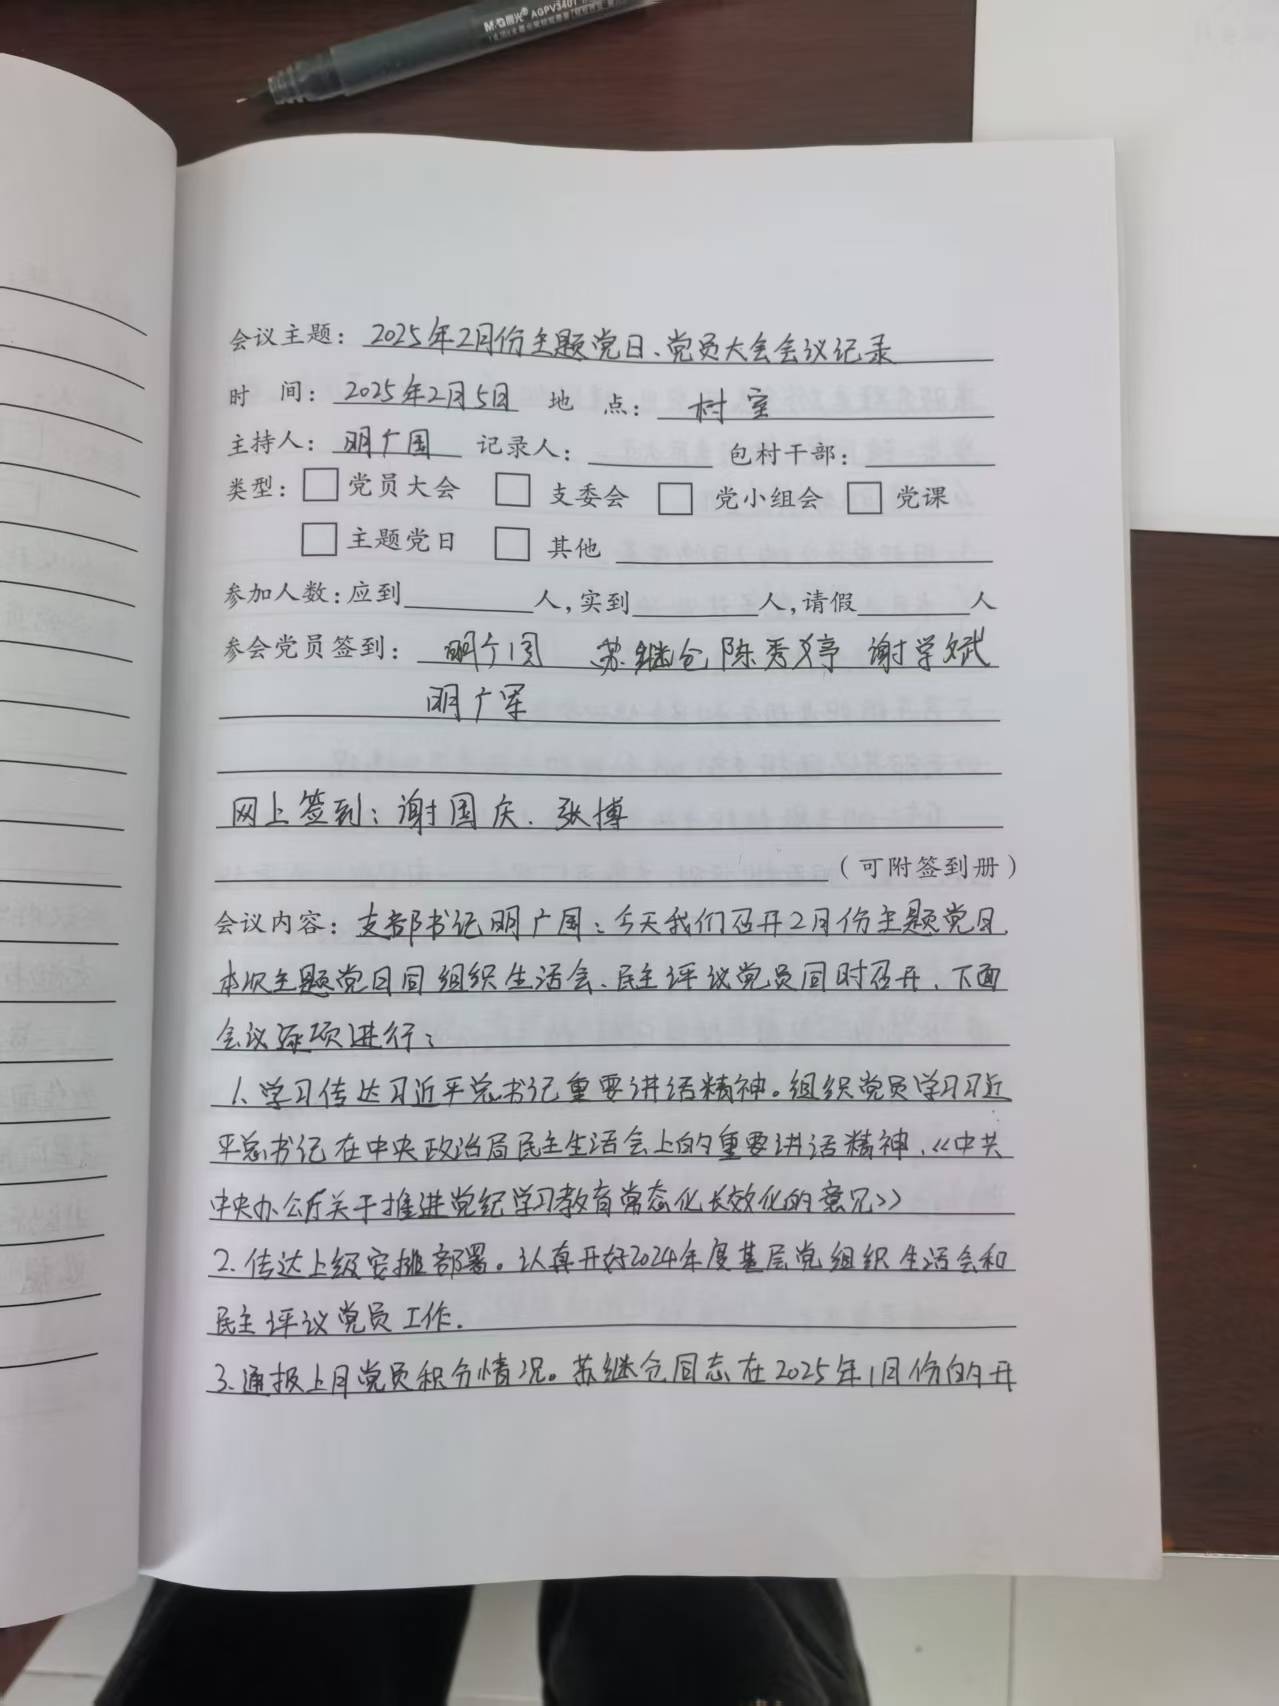 M&G晨光 AGPV3401
会议主题：2025年2月份主题党日、党员大会会议记录
时 间：2025年2月5日 地 点：村室
主持人：明广国 记录人： 包村干部：
类型：□党员大会 □支委会 □党小组会 □党课
□主题党日 □其他
参加人数：应到 人，实到 人，请假 人
参会党员签到：明广国 苏继仓 陈秀婷 谢学斌
明广军
网上签到：谢国庆、张博
（可附签到册）
会议内容：支部书记明广国：今天我们召开2月份主题党日，
本次主题党日同组织生活会、民主评议党员同时召开，下面
会议逐项进行：
1、学习传达习近平总书记重要讲话精神。组织党员学习习近
平总书记在中央政治局民主生活会上的重要讲话精神，《中共
中央办公厅关于推进党纪学习教育常态化长效化的意见》
2、传达上级安排部署。认真开好2024年度基层党组织生活会和
民主评议党员工作.
3、通报上月党员积分情况。苏继仓同志在2025年1月份的开